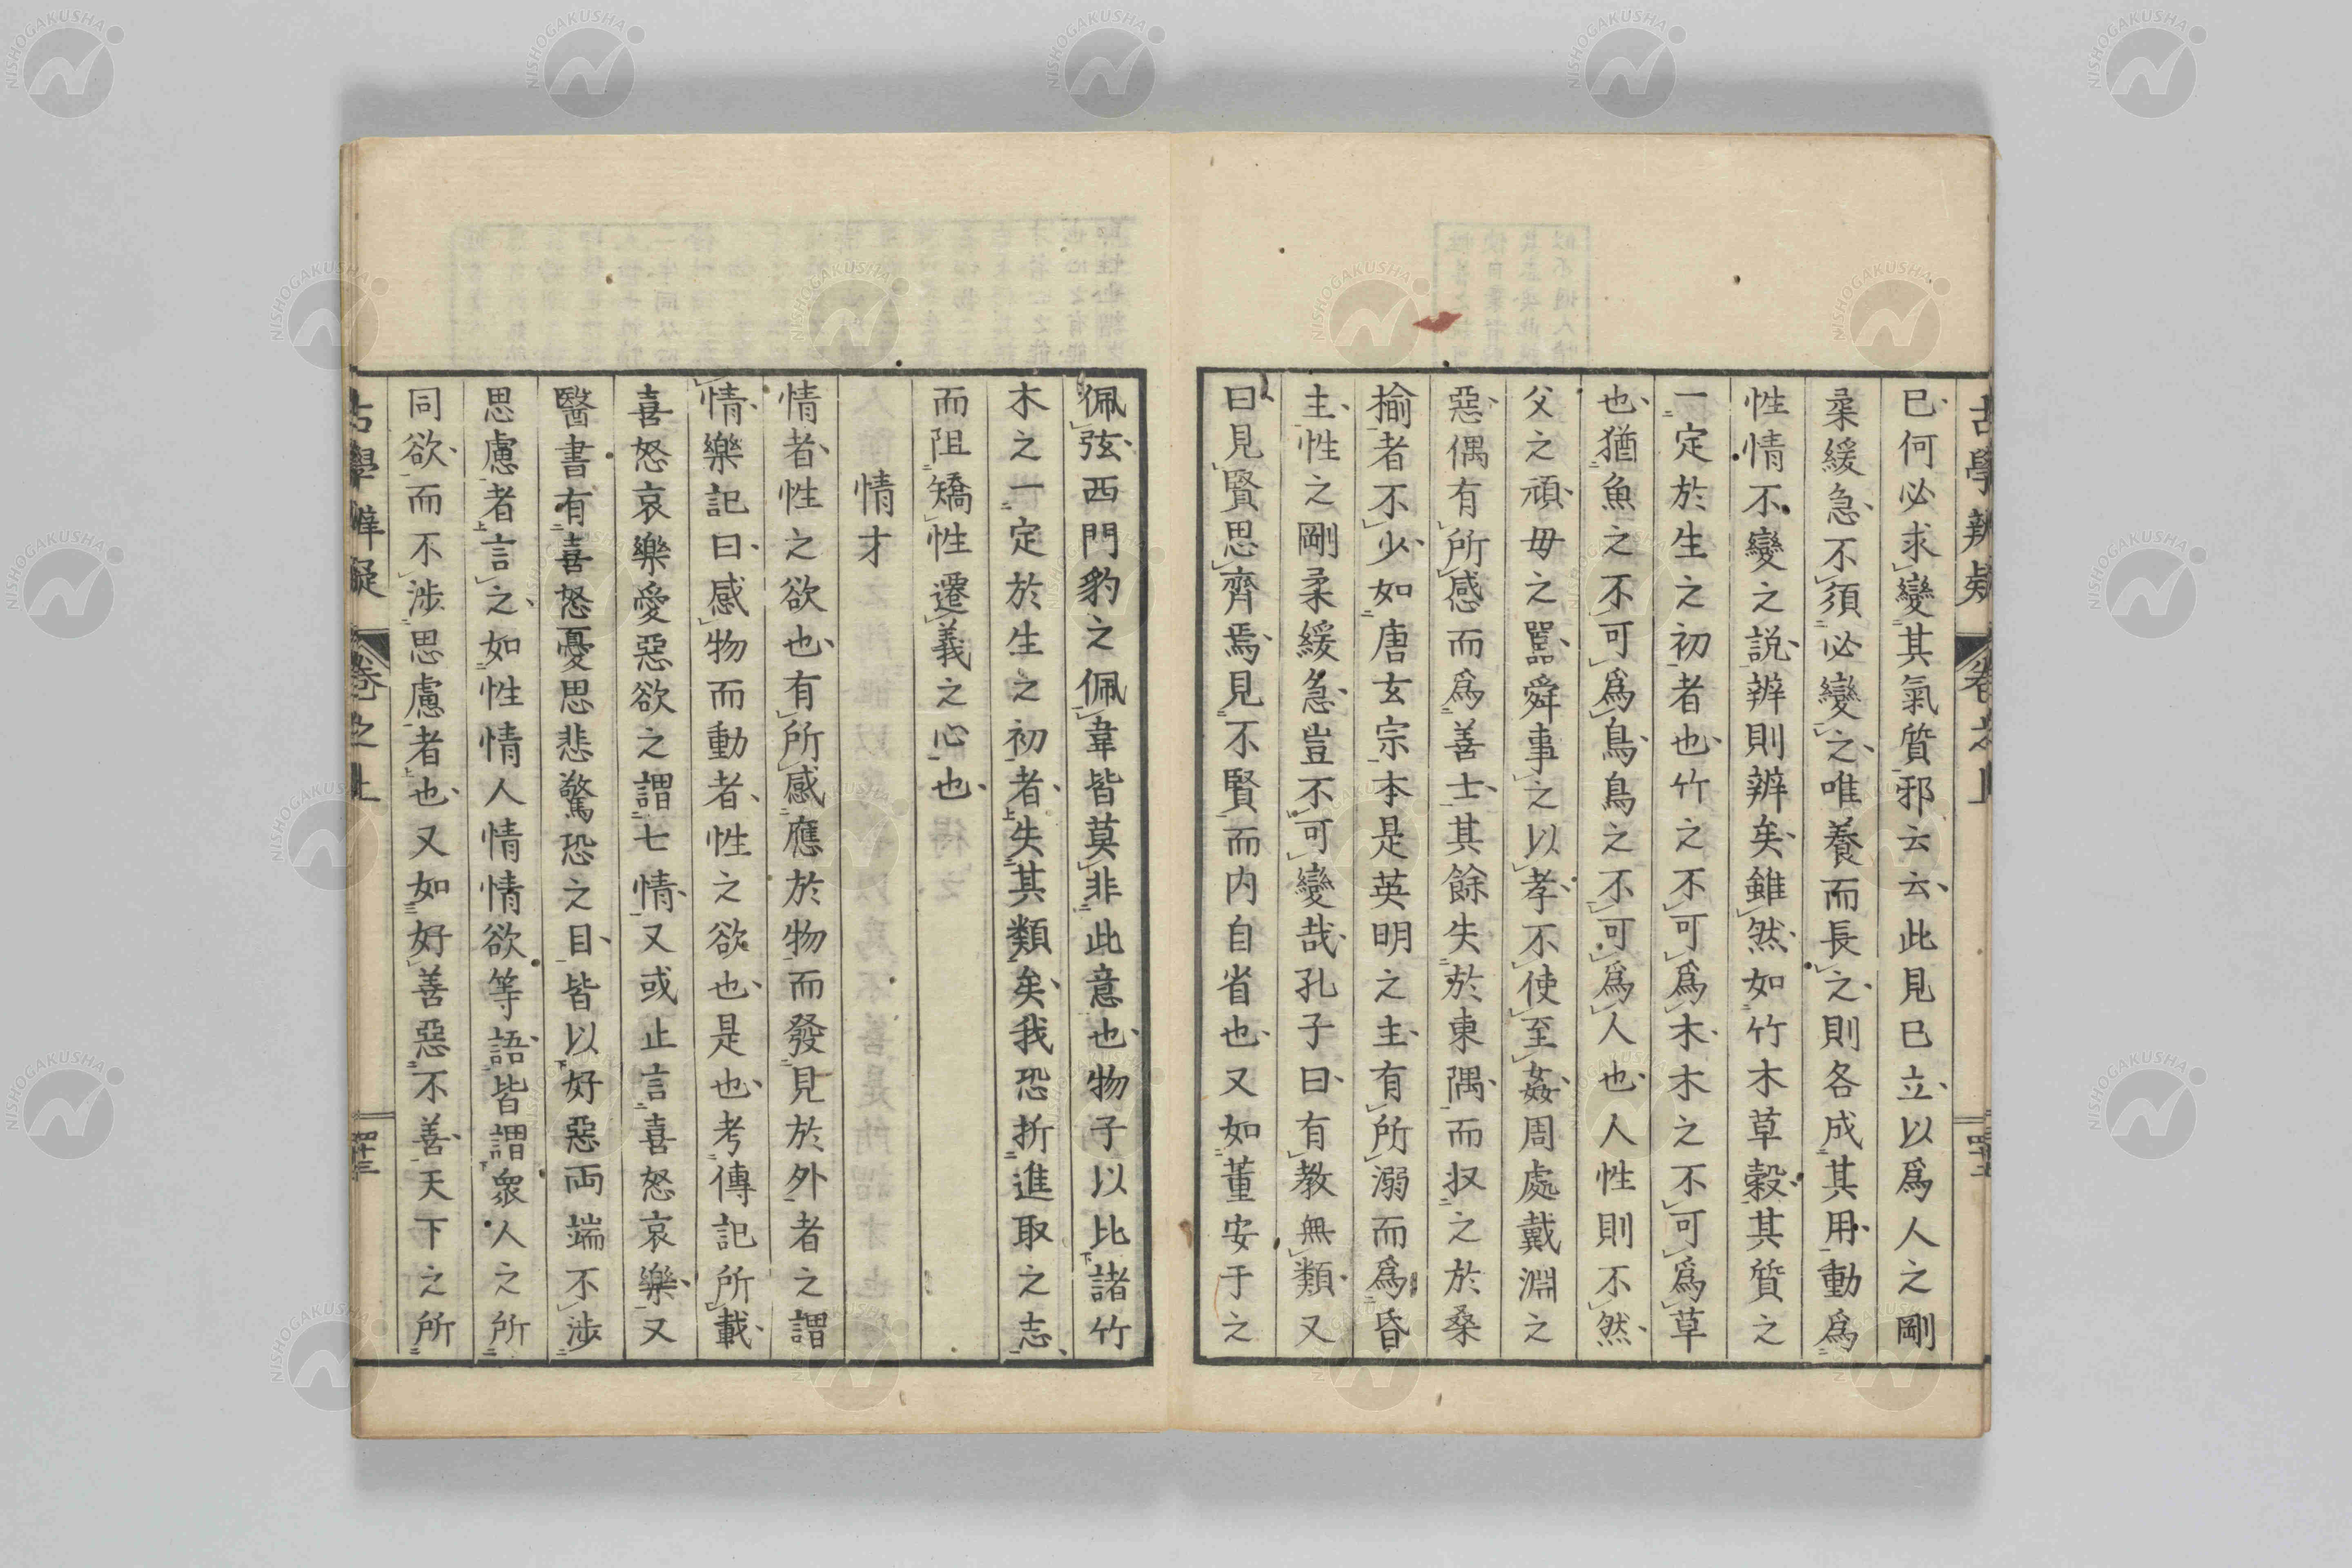 古學辨疑 卷之上
已何必求變其氣質邪云云此見已立以爲人之剛
柔緩急不須必變之唯養而長之則各成其用動爲
性情不變之説辨則辨矣雖然如竹木草穀其質之
一定於生之初者也竹之不可爲木木之不可爲草
也猶魚之不可爲鳥鳥之不可爲人也人性則不然
父之頑毋之嚚舜事之以孝不使至姦周處戴淵之
惡偶有所感而爲善士其餘失於東隅而収之於桑
揄者不少如唐玄宗本是英明之主有所溺而爲昏
主性之剛柔緩急豈不可變哉孔子曰有教無類又
曰見賢思齊焉見不賢而内自省也又如董安于之
佩弦西門豹之佩韋皆莫非此意也物子以比諸竹
木之一定於生之初者失其類矣我恐折進取之志
而阻矯性遷義之心也
情才
情者性之欲也有所感應於物而發見於外者之謂
情樂記曰感物而動者性之欲也是也考傳記所載
喜怒哀樂愛惡欲之謂七情又或止言喜怒哀樂又
醫書有喜怒憂思悲驚恐之目皆以好惡両端不渉
思慮者言之如性情人情情欲等語皆謂衆人之所
同欲而不渉思慮者也又如好善惡不善天下之所
古學辨疑 卷之上 四十三
NISHOGAKUSHA